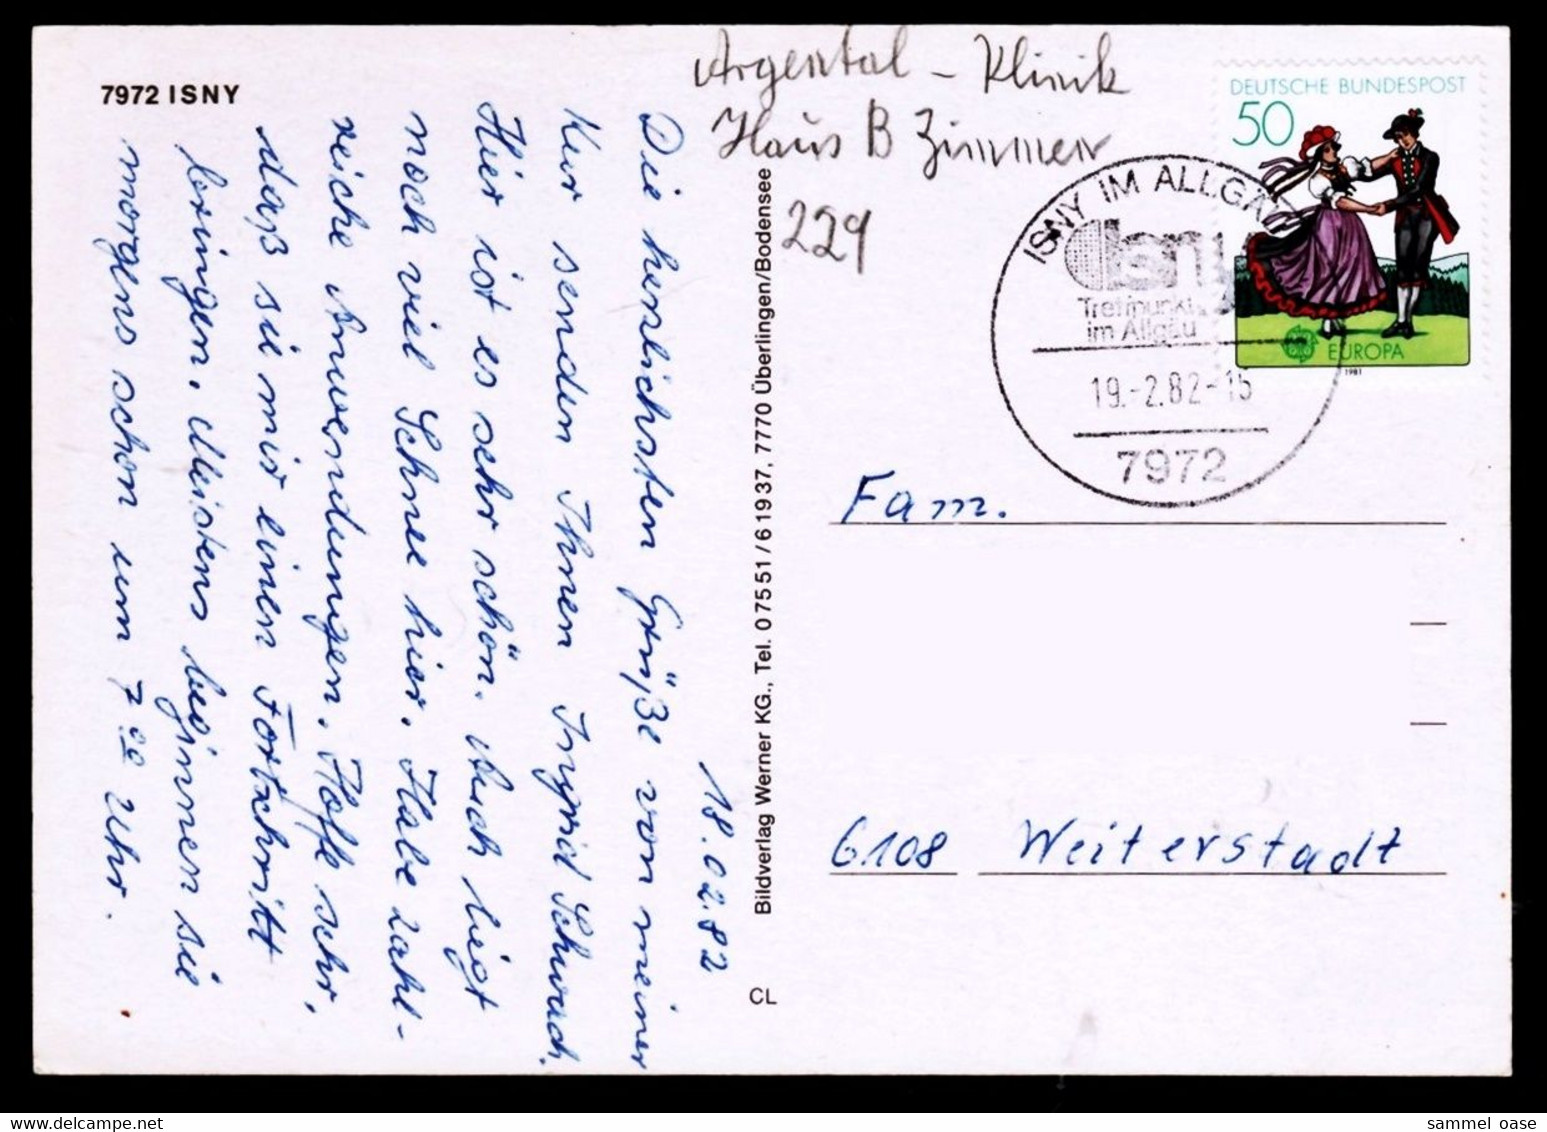 7972 ISNY
18.02.82
Die herzlichsten Grüße von meiner
Kur senden Ihnen Ingrid Schwach.
Hier ist es sehr schön. Auch liegt
noch viel Schnee hier. Habe zahl-
reiche Anwendungen. Hoffe sehr,
daß sie mir einen Fortschritt
bringen. Meistens beginnen sie
morgens schon um 7 00 Uhr.
Bildverlag Werner KG., Tel. 0 75 51 / 6 19 37, 7770 Überlingen/Bodensee
CL
Argental - Klinik
Haus B Zimmer
229
DEUTSCHE BUNDESPOST
50
EUROPA
1981
ISNY IM ALLGÄU
Isny
Treffpunkt
im Allgäu
19.-2.82-15
7972
Fam.
6108 Weiterstadt
sammel_oase